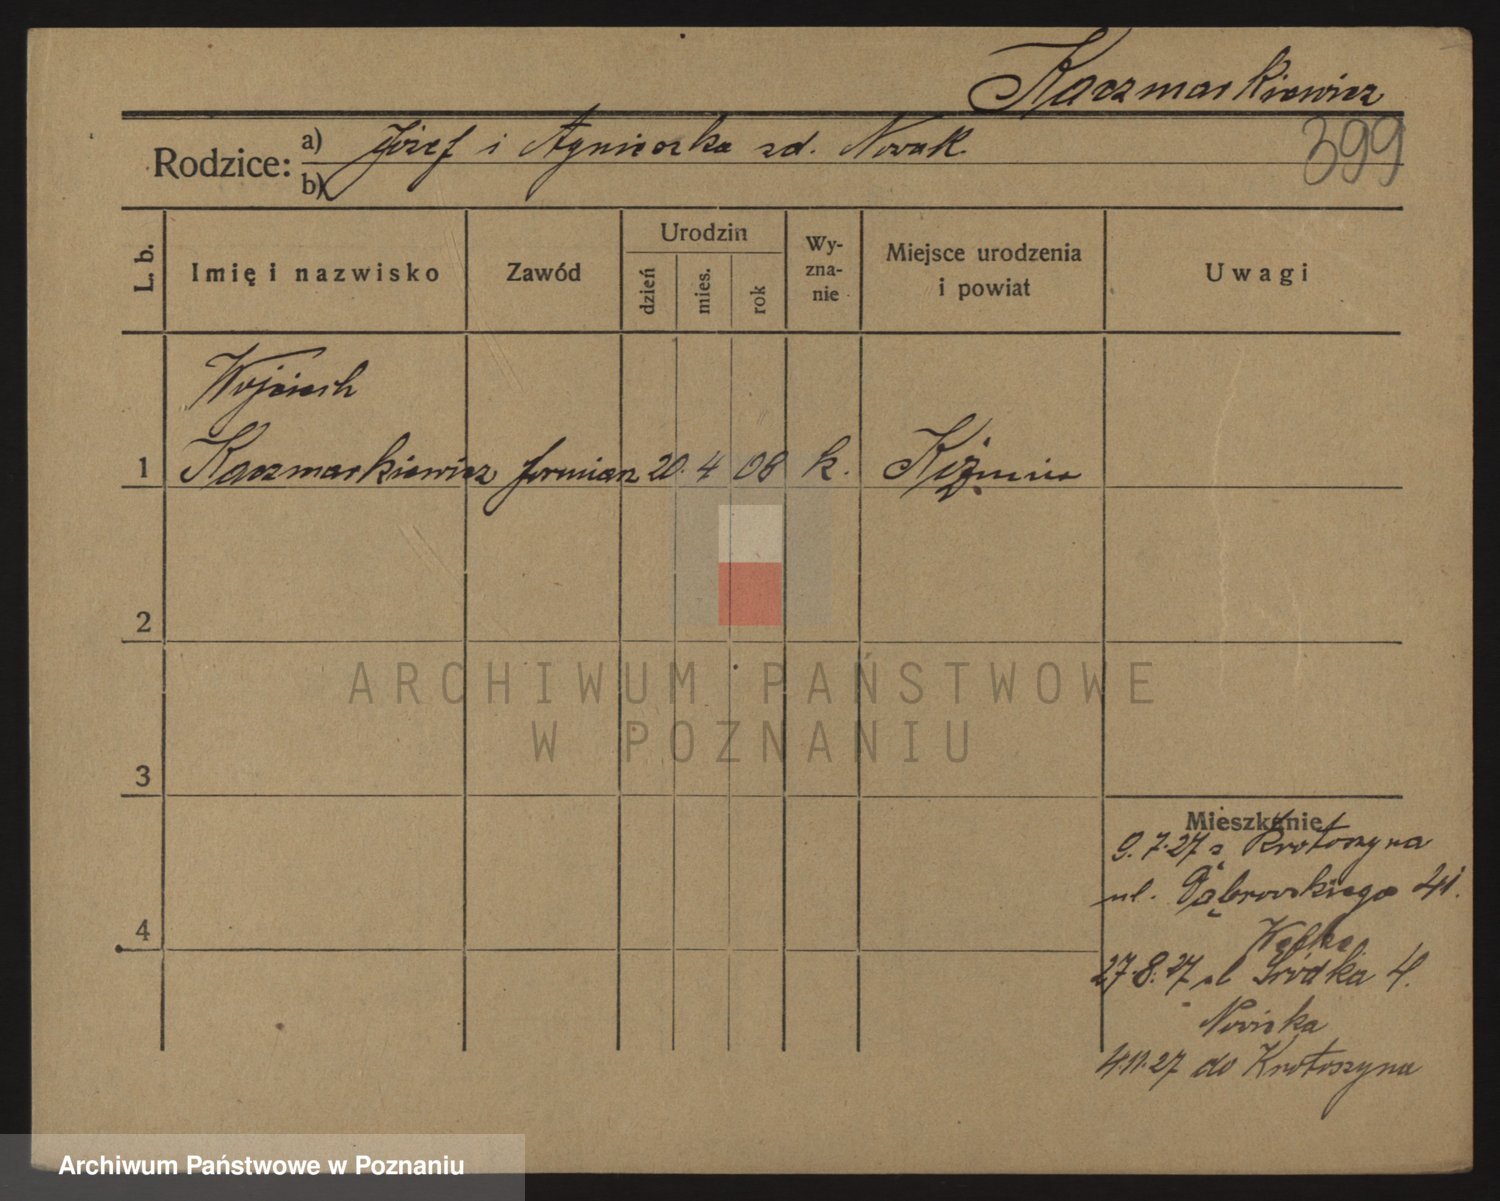 Kaczmarkiewicz
399
Rodzice: a) Józef i Agnieszka zd. Nowak.
b)
L. b. Imię i nazwisko Zawód Urodzin dzień mies. rok Wy-zna-nie Miejsce urodzenia i powiat Uwagi
Wojciech
1 Kaczmarkiewicz formierz 20. 4 08 k. Koźmin
2
ARCHIWUM PAŃSTWOWE
W POZNANIU
3
Mieszkanie
9.7.27 z Krotoszyna
4 ul. Dąbrowskiego 41.
27.8.27 ul Śródka 4.
Nowicka
4.11.27 do Krotoszyna
Archiwum Państwowe w Poznaniu